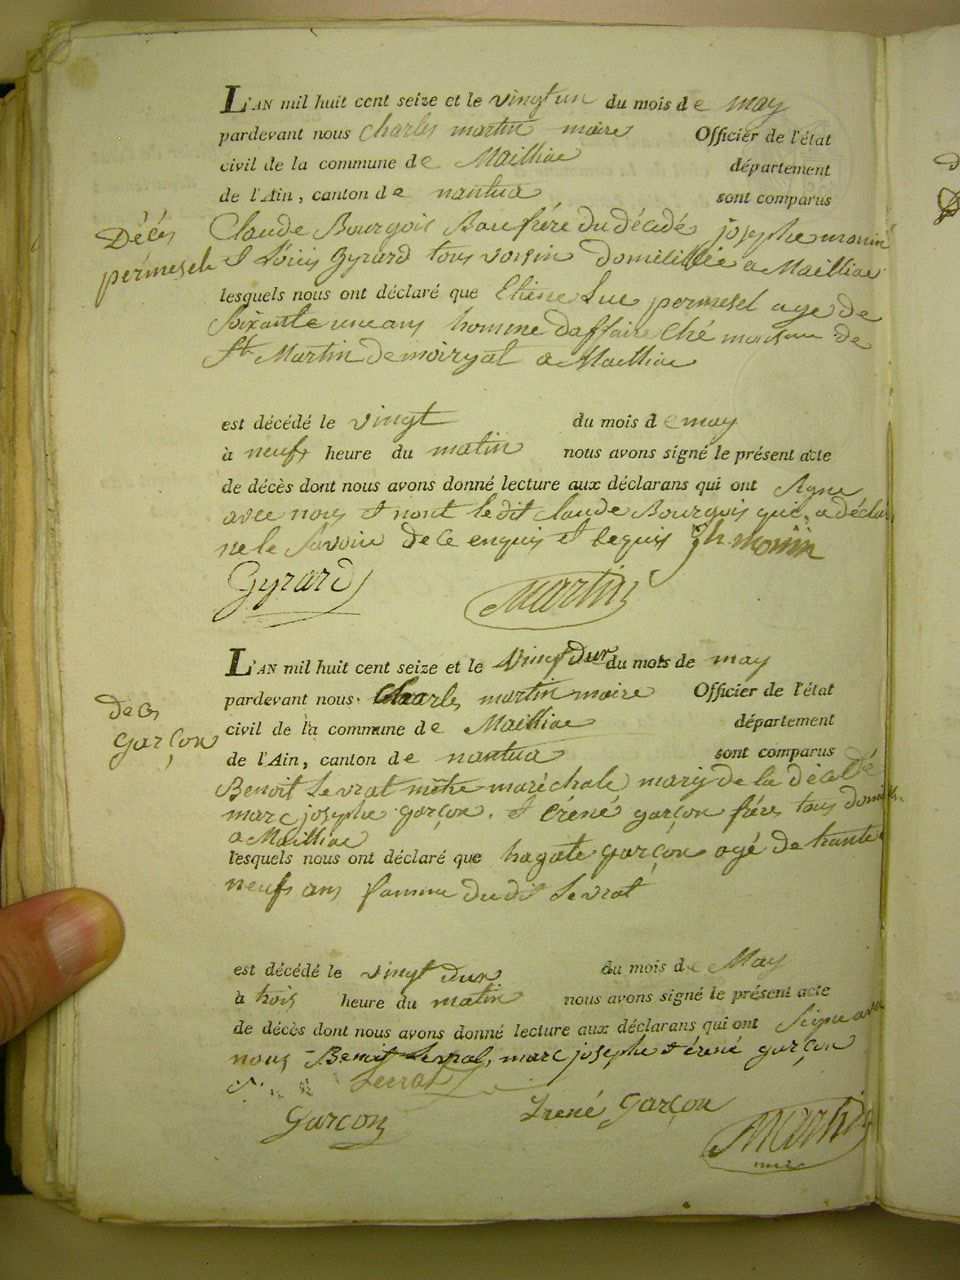 L'AN mil huit cent seize et le vingt un du mois de may
pardevant nous Charles martin maire Officier de l'état
civil de la commune de Mailliac département
de l'Ain, canton de nantua sont comparus
Décés
permesel
Claude Bourgois Baufrére du décédé josephe monin
et Louis Gyrard tous voisin domeliliée a Mailliac
lesquels nous ont déclaré que Etiene Luc permesel age de
Soixante un ans homme daffaire Ché maison de
St Martin demoiryal a Mailliac
est décédé le vingt du mois de may
à neufs heure du matin nous avons signé le présent acte
de décès dont nous avons donné lecture aux déclarans qui ont Signe
avec nous et nont le dit Claude Bourgois qui a déclaré
ne le Savoir de ce enquis et requis jh monin
Gyrard Martin
L'AN mil huit cent seize et le vingt dux du mois de may
pardevant nous Charles martin maire Officier de l'état
civil de la commune de Mailliac département
de l'Ain, canton de nantua sont comparus
deces
garçon
Benoit Levrat mêtre maréchale mary de la décédé
marc josephe garçon, et éréné garçon fréres tous
a Mailliac
lesquels nous ont déclaré que hagate garçon agé de trante
neufs ans famme du dit Levrat
est décédé le vingt dux du mois de May
à trois heure du matin nous avons signé le présent acte
de décès dont nous avons donné lecture aux déclarans qui ont Signe avec
nous Benoit Levrat, marc josephe et éréné garçon
Levrat
Garcon Iréné Garçon
Martin